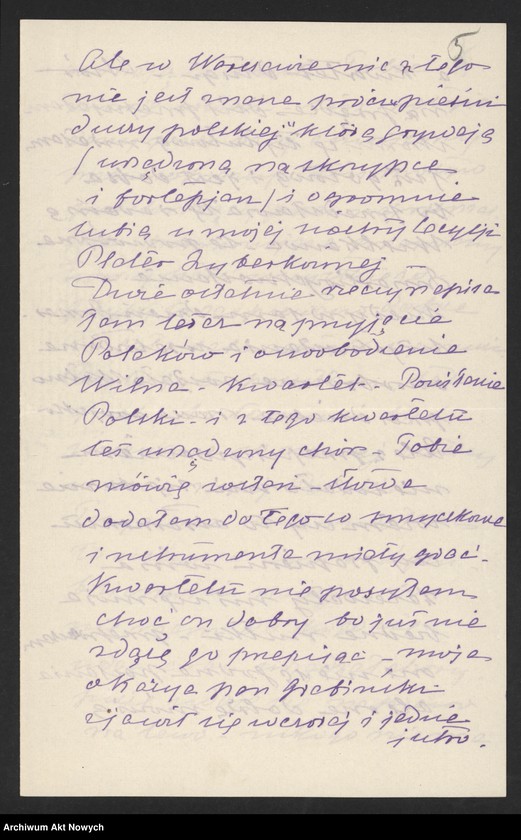 5
Ale w Warszawie nic z tego
nie jest znane prócz „pieśni
duszy polskiej" którą grywają
/ urządzoną na skrzypce
i fortepjan / i ogromnie
lubią u mojej siostry Cecylji
Plater Zyberkównej
Dwie ostatnie rzeczy napisa
łam teraz na przyjęcie
Polaków i oswobodzenie
Wilna - Kwartet - Powstanie
Polski - i z tego kwartetu
też urządzony chór - Tobie
mówię wstań - słowa
dodałam do tego co smyczkowe
instrumenta miały grać -
Kwartetu nie posyłam
choć on dobry bo już nie
zdążę go przepisać - moja
okazya pan Grabiński
zjawił się wczoraj i jedzie
jutro.
Archiwum Akt Nowych